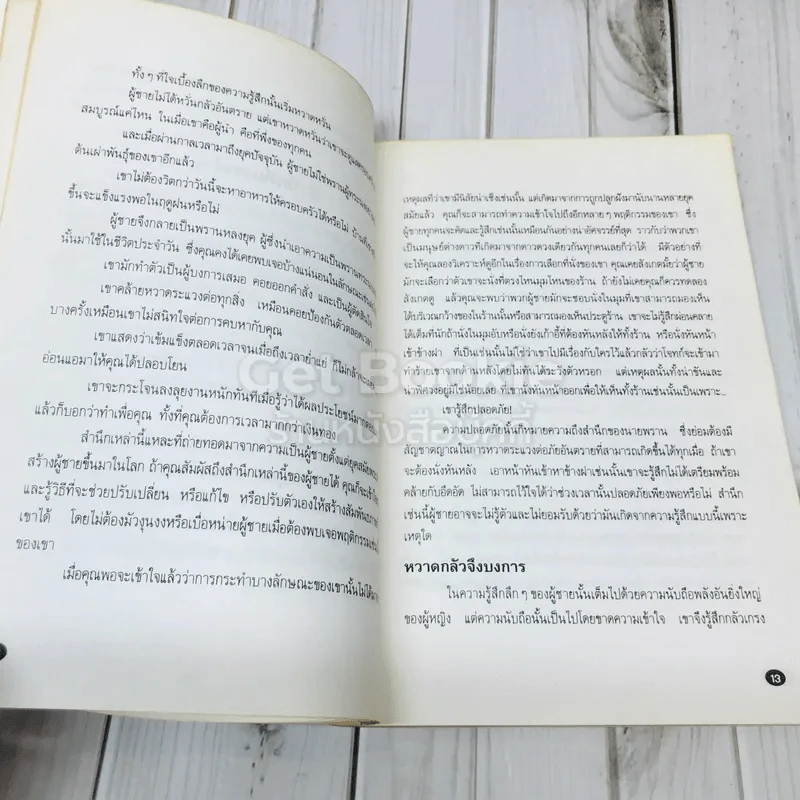 ทั้ง ๆ ที่ใจเบื้องลึกของความรู้สึกนั้นเริ่มหวาดหวั่น
ผู้ชายไม่ได้หวั่นกลัวอันตราย แต่เขาหวาดหวั่นว่าเขาจะดูแล
สมบูรณ์แค่ไหน ในเมื่อเขาคือผู้นำ คือที่พึ่งของทุกคน
และเมื่อผ่านกาลเวลามาถึงยุคปัจจุบัน ผู้ชายไม่ใช่พราน
ต้นเผ่าพันธุ์ของเขาอีกแล้ว
เขาไม่ต้องวิตกว่าวันนี้จะหาอาหารให้ครอบครัวได้หรือไม่
ขึ้นจะแข็งแรงพอในฤดูฝนหรือไม่
ผู้ชายจึงกลายเป็นพรานหลงยุค ผู้ซึ่งนำเอาความเป็นพราน
นั้นมาใช้ในชีวิตประจำวัน ซึ่งคุณคงได้เคยพบเจอบ้างแน่นอนในลักษณะ
เขามักทำตัวเป็นผู้บงการเสมอ คอยออกคำสั่ง และเป็นผู้ตัดสินใจ
เขาคล้ายหวาดระแวงต่อทุกสิ่ง เหมือนคอยป้องกันตัวตลอดเวลา
บางครั้งเหมือนเขาไม่สนิทใจต่อการคบหากับคุณ
เขาแสดงว่าเข้มแข็งตลอดเวลาจนเมื่อถึงเวลาย่ำแย่ ก็ไม่กล้า
อ่อนแอมาให้คุณได้ปลอบโยน
เขาจะกระโจนลงลุยงานหนักทันทีเมื่อรู้ว่าได้ผลประโยชน์
แล้วก็บอกว่าทำเพื่อคุณ ทั้งที่คุณต้องการเวลามากกว่าเงินทอง
สำนึกเหล่านี้แหละที่ถ่ายทอดมาจากความเป็นผู้ชายตั้งแต่ยุค
สร้างผู้ชายขึ้นมาในโลก ถ้าคุณสัมผัสถึงสำนึกเหล่านี้ของผู้ชายได้ คุณก็จะ
และรู้วิธีที่จะช่วยปรับเปลี่ยน หรือแก้ไข หรือปรับตัวเองให้สร้าง
เขาได้ โดยไม่ต้องมัวงุนงงหรือเบื่อหน่ายผู้ชายเมื่อต้องพบเจอพฤติกรรม
ของเขา
เมื่อคุณพอจะเข้าใจแล้วว่าการกระทำบางลักษณะของเขานั้นไม่ได้
เหตุผลที่ว่าเขามีนิสัยน่าเซ็งเช่นนั้น แต่เกิดมาจากการถูกปลูกฝังมานับนานหลายยุค
สมัยแล้ว คุณก็จะสามารถทำความเข้าใจไปถึงอีกหลาย ๆ พฤติกรรมของเขา ซึ่ง
ผู้ชายทุกคนจะคิดและรู้สึกเช่นนั้นเหมือนกันอย่างน่าอัศจรรย์ที่สุด ราวกับว่าพวกเขา
เป็นมนุษย์ต่างดาวที่เกิดมาจากดาวดวงเดียวกันทุกคนเลยก็ว่าได้ มีตัวอย่างที่
จะให้คุณลองวิเคราะห์ดูอีกในเรื่องการเลือกที่นั่งของเขา คุณเคยสังเกตมั้ยว่าผู้ชาย
มักจะเลือกว่าตัวเขาจะนั่งที่ตรงไหนมุมไหนของร้าน ถ้ายังไม่เคยคุณก็ควรทดลอง
สังเกตดู แล้วคุณจะพบว่าพวกผู้ชายมักจะชอบนั่งในมุมที่เขาสามารถมองเห็น
ได้บริเวณกว้างของในร้านนั้นหรือสามารถมองเห็นประตูร้าน เขาจะไม่รู้สึกผ่อนคลาย
ได้เต็มที่นักถ้านั่งในมุมอับหรือนั่งยังเก้าอี้ที่ต้องหันหลังให้ทั้งร้าน หรือนั่งหันหน้า
เข้าข้างฝา ที่เป็นเช่นนั้นไม่ใช่ว่าเขาไปมีเรื่องกับใครไว้แล้วกลัวว่าโจทก์จะเข้ามา
ทำร้ายเขาจากด้านหลังโดยไม่ทันได้ระวังตัวหรอก แต่เหตุผลนั้นทั้งน่าขันและ
น่าพิศวงอยู่มิใช่น้อยเลย ที่เขานั่งหันหน้าออกเพื่อให้เห็นทั้งร้านเช่นนั้นเป็นเพราะ...
เขารู้สึกปลอดภัย!
ความปลอดภัยนั้นก็หมายความถึงสำนึกของนายพราน ซึ่งย่อมต้องมี
สัญชาตญาณในการหวาดระแวงต่อภัยอันตรายที่สามารถเกิดขึ้นได้ทุกเมื่อ ถ้าเขา
จะต้องนั่งหันหลัง เอาหน้าหันเข้าหาข้างฝาเช่นนั้นเขาจะรู้สึกไม่ได้เตรียมพร้อม
คล้ายกับอึดอัด ไม่สามารถไว้ใจได้ว่าช่วงเวลานั้นปลอดภัยเพียงพอหรือไม่ สำนึก
เช่นนี้ผู้ชายอาจจะไม่รู้ตัวและไม่ยอมรับด้วยว่ามันเกิดจากความรู้สึกแบบนี้เพราะ
เหตุใด
หวาดกลัวจึงบงการ
ในความรู้สึกลึก ๆ ของผู้ชายนั้นเต็มไปด้วยความนับถือพลังอันยิ่งใหญ่
ของผู้หญิง แต่ความนับถือนั้นเป็นไปโดยขาดความเข้าใจ เขาจึงรู้สึกกลัวเกรง
13
Get Bookie
ร้านหนังสือบุ๊คกี้